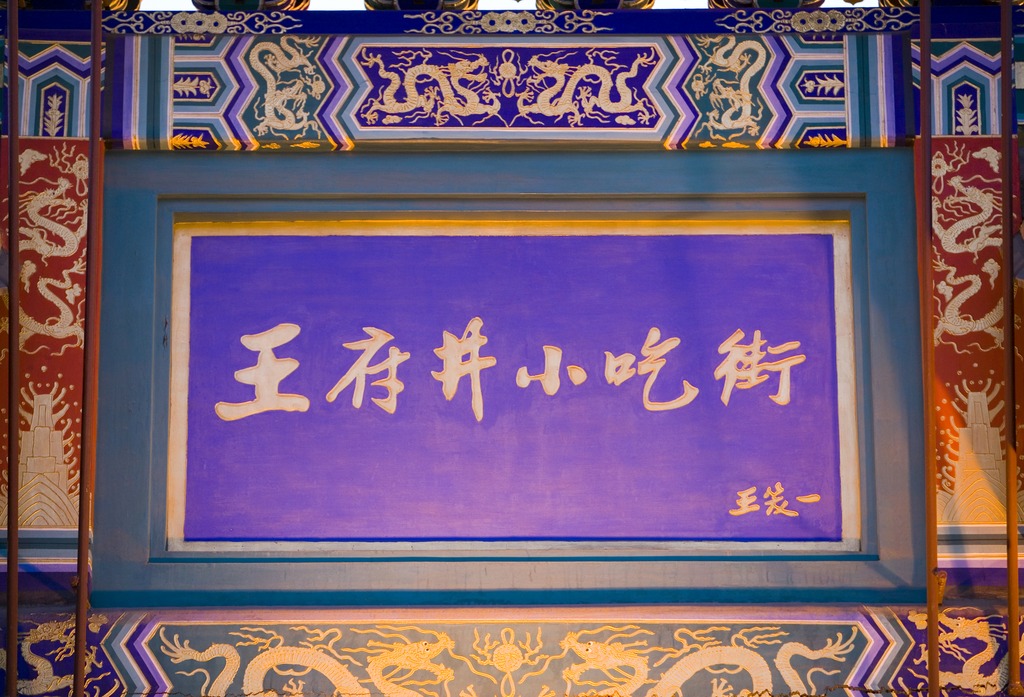 王府井小吃街
王 一